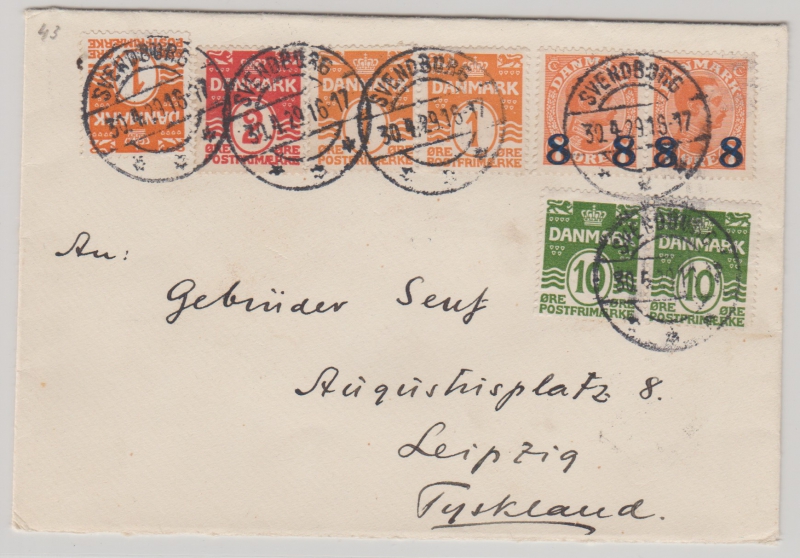 43
SVENDBORG SVENDBORG SVENDBORG SVENDBORG
30.4.29.16-17 30.4.29.16-17 30.4.29.16-17 30.4.29.16-17
1 DANMARK
DANMARK DANMARK DANMARK DANMARK
2 1 1 8 8 8 8
ØRE ØRE ØRE ØRE ØRE
POSTFRIMÆRKE POSTFRIMÆRKE POSTFRIMÆRKE
DANMARK DANMARK
10 10
ØRE ØRE
POSTFRIMÆRKE POSTFRIMÆRKE
An:
Gebrüder Senf
Augustusplatz 8.
Leipzig
Tyskland.